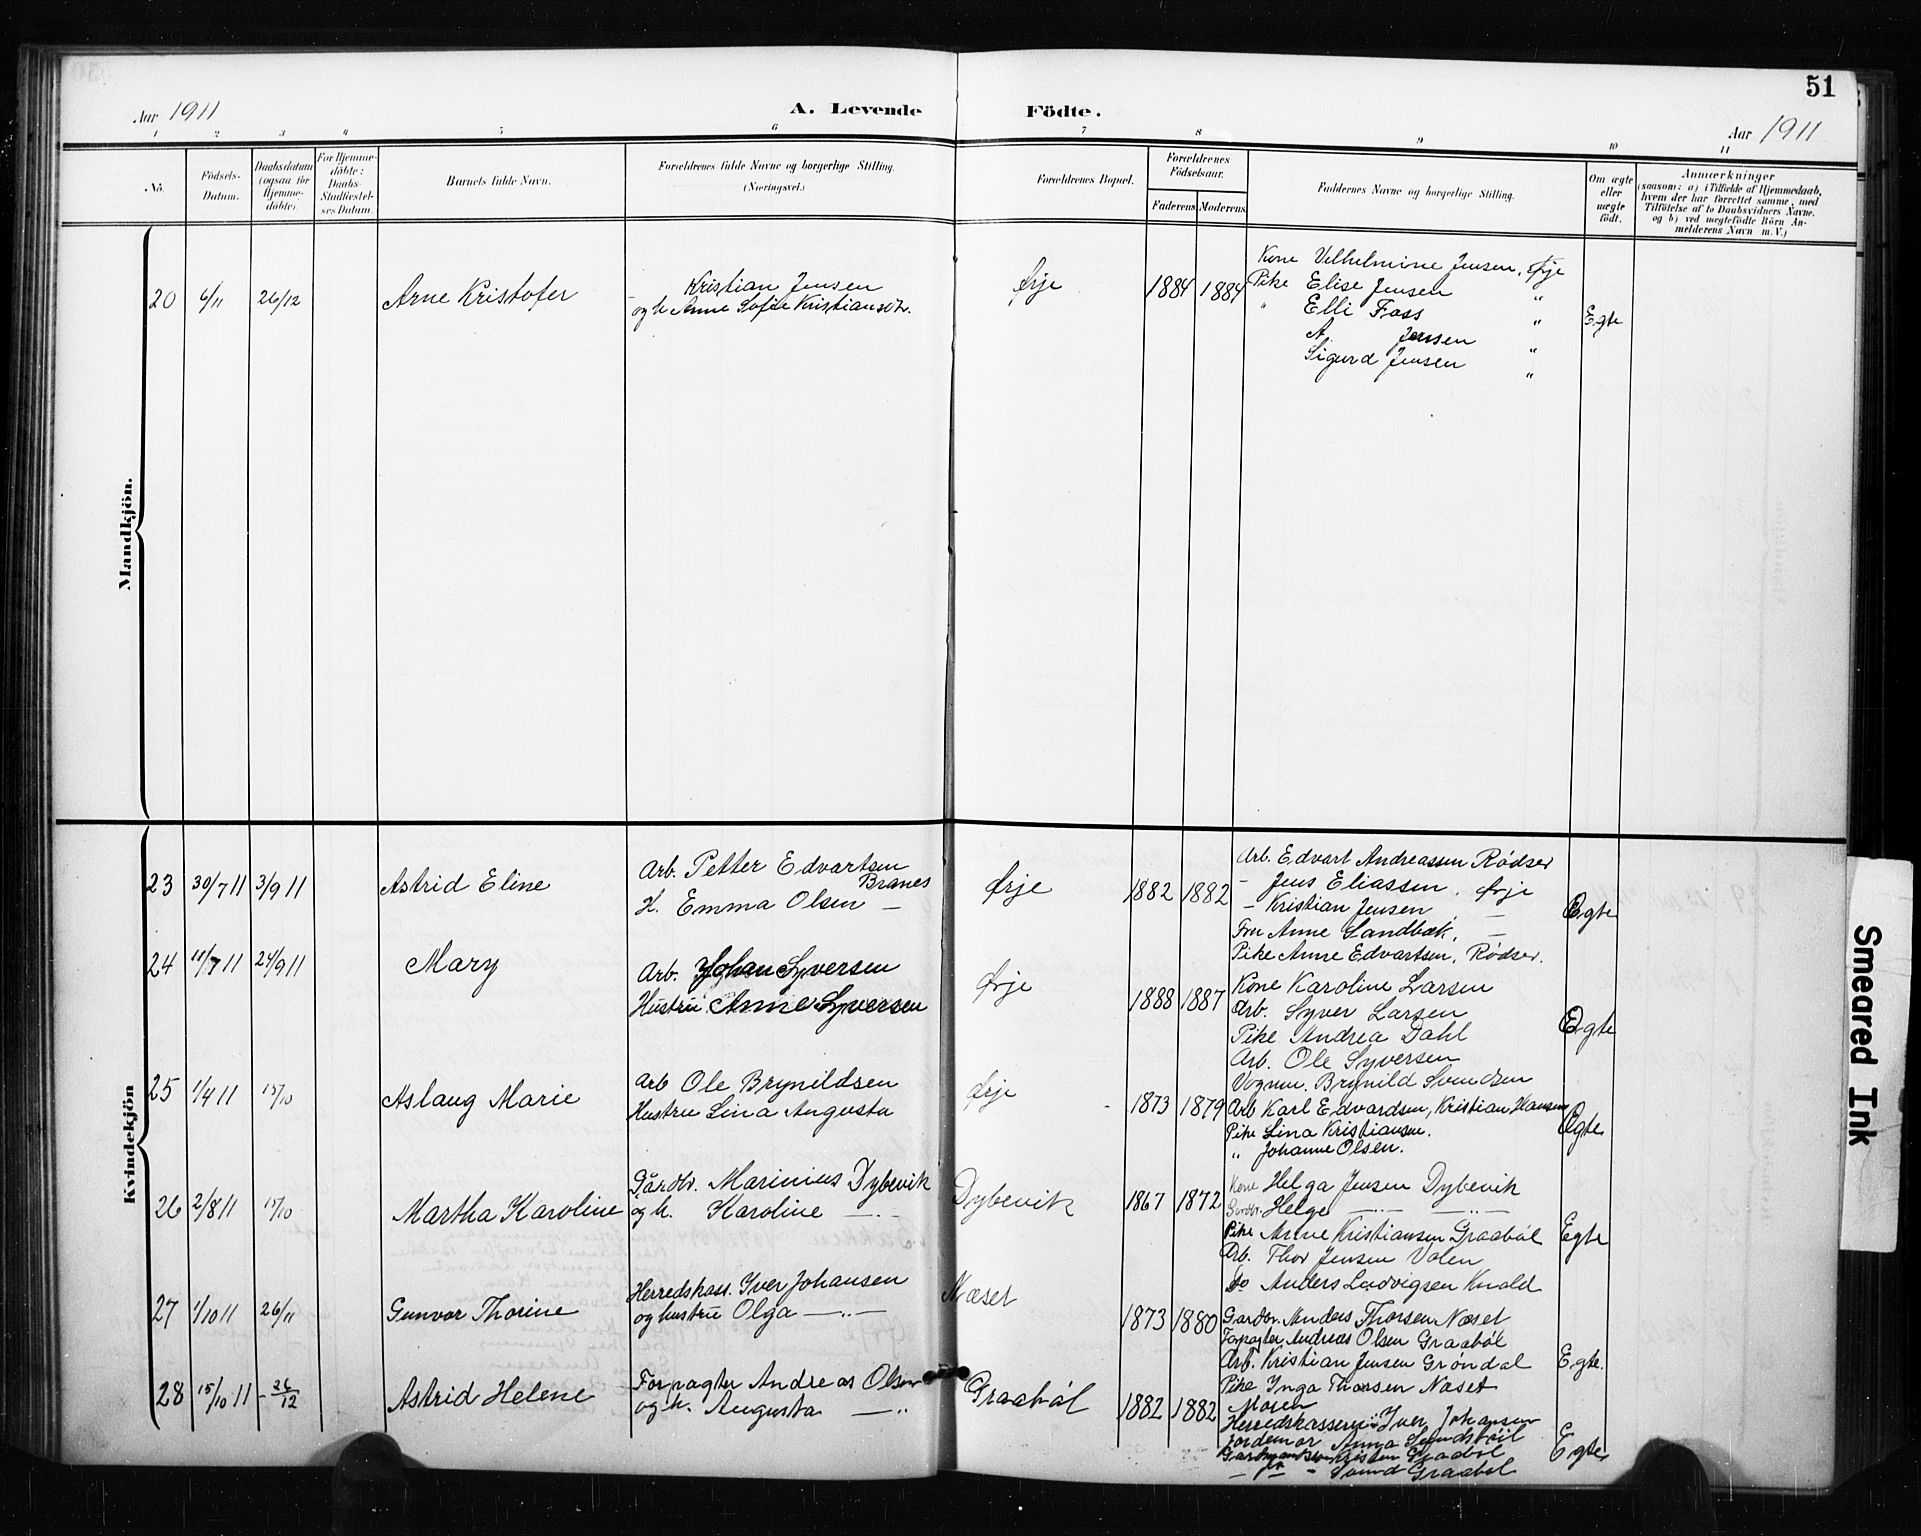 51
Aar 1911
A. Levende Födte.
Aar 1911
1 2 3 4 5 6 7 8 9 10 11
No.
Födsels-Datum.
Daabsdatum (ogsaa for Hjemme-döbte).
For Hjemme-döbte: Daabs-Stadfæstel-ses Datum.
Barnets fulde Navn.
Forældrenes fulde Navne og borgerlige Stilling.
(Næringsvei.)
Forældrenes Bopæl.
Forældrenes Födselsaar.
Faderens Moderens
Faddernes Navne og borgerlige Stilling.
Om ægte eller uægte født.
Anmærkninger
(saasom: a) i Tilfælde af Hjemmedaab,
hvem der har forrettet samme, med
Tilföielse af to Daabsvidners Navne,
og b) ved uægtefödte Börn An-
melderens Navn m. V.)
Mandkjön.
20 6/11 26/12 Arne Kristofer
Kristian Jensen
og h Anne Sofie Kristiansdtr.
Ørje 1884 1884
Kone Vilhelmine Jensen, Ørje
Pike Elise Jensen "
" Elli Foss "
A. Jensen "
Sigurd Jensen "
Egte
Kvindekjön
23 30/7 11 3/9 11 Astrid Eline
Arb. Petter Edvartsen
Branes
H. Emma Olsen —
Ørje 1882 1882
Arb. Edvart Andreassen Rødser
- Jens Eliassen. Ørje
- Kristian Jensen —
Fru Anne Sandbæk, —
Pike Anne Edvartsen, Rødser.
Egte
24 11/7 11 24/9 11 Mary
Arb. Johan Syversen
Hustru Anne Syversen
Ørje 1888 1887
Kone Karoline Larsen
Arb. Syver Larsen
Pike Andrea Dahl
Arb. Ole Syversen
Egte
25 1/4 11 15/10 Aslaug Marie
Arb Ole Brynildsen
Hustru Lina Augusta
Ørje 1873 1879
Vognm. Brynild Svendsen
Arb Karl Edvardsen, Kristian Hansen
Pike Lina Kristiansen.
" Johanne Olsen.
Egte
26 2/8 11 15/10 Martha Karoline
Gårdbr. Marinius Dybevik
og h. Karoline —"—
Dybevik 1867 1872
Kone Helga Jensen Dybevik
Gårdbr. Helge —"— —"—
Pike Anne Kristiansen Graabøl
Arb. Thor Jensen Volen
Do Anders Ludvigsen Knold
Egte
27 1/10 11 26/11 Gunvor Thorine
Herredskass. Iver Johansen
og hustru Olga —"—
Næset 1873 1880
Gardbr. Anders Thorsen Næset
Forpagter Andreas Olsen Graabøl
Arb. Kristian Jensen Grøndal
Pike Inga Thorsen Næset
Egte.
28 15/10 11 26/12 Astrid Helene
Forpagter Andreas Olsen
og h. Augusta —"
Graabøl 1882 1882
Mosen
Herredskasserer Iver Johansen
Jordemor Anna
Kristen Graabøl
Svend Graabøl
Egte
Smeared Ink